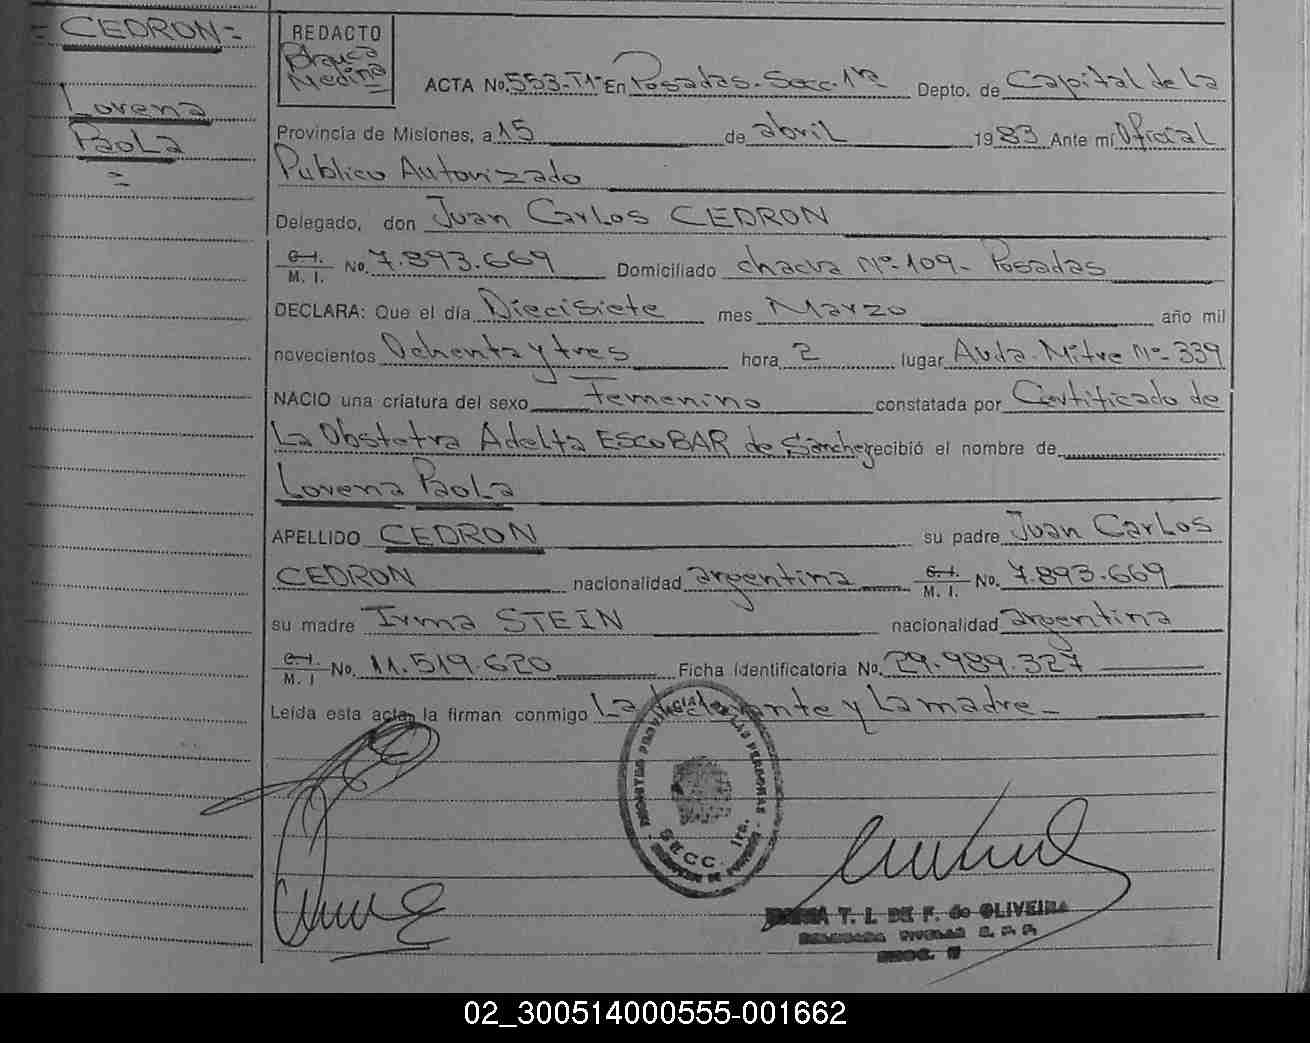 = CEDRON =
Lorena
Paola
=
REDACTO
Medina
ACTA No. 553-T1- En Posadas. Secc. 1ra Depto. de Capital de la
Provincia de Misiones, a 15 de abril 1983 Ante mí Oficial
Publico Autorizado
Delegado, don Juan Carlos CEDRON
C.I. M. I. No. 7.893.669 Domiciliado chacra Nº 109- Posadas
DECLARA: Que el día Diecisiete mes Marzo año mil
novecientos Ochenta y tres hora 2 lugar Avda. Mitre Nº 339
NACIO una criatura del sexo Femenino constatada por Certificado de
La Obstetra Adelta ESCOBAR de Sánchez recibió el nombre de
Lorena Paola
APELLIDO CEDRON su padre Juan Carlos
CEDRON nacionalidad argentina C.I. M. I. No. 7.893.669
su madre Irma STEIN nacionalidad argentina
C.I. M. I No. 11.519.620 Ficha Identificatoria No. 29.989.327
Leída esta acta, la firman conmigo La declarante y La madre -
REGISTRO PROVINCIAL DE LAS PERSONAS
SECC. 1ra.
T. I. DE F. de OLIVEIRA
02_300514000555-001662